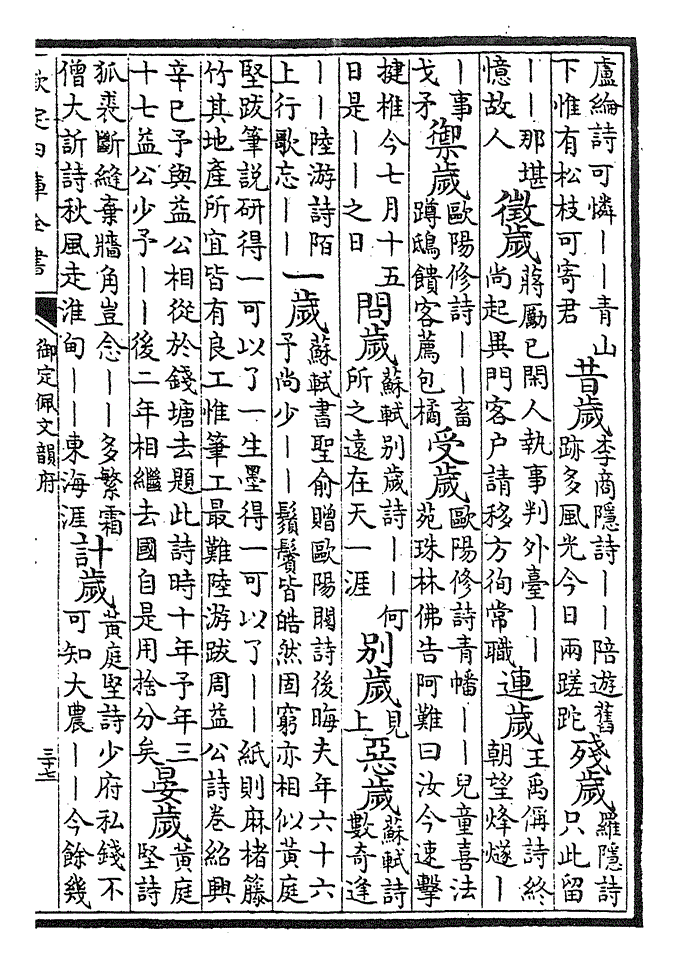 盧綸詩可憐——青山下惟有松枝可寄君 昔歲 李商隱詩——陪遊舊跡多風光今日兩蹉跎 殘歲 羅隱詩只此留
——那堪憶故人 徵歲 蔣勵已閑人執事判外臺——尚起異門客户請移方徇常職 連歲 王禹偁詩終朝望烽燧—
—事戈矛 禦歲 歐陽修詩——畜蹲鴟饋客薦包橘 受歲 歐陽修詩青幡——兒童喜法苑珠林佛告阿難曰汝今速擊
揵椎今七月十五日是——之日 問歲 蘇軾别歲詩——何所之遠在天一涯 别歲 見上 惡歲 蘇軾詩數奇逢
——陸游詩陌上行歌忘—— 一歲 蘇軾書聖俞贈歐陽閥詩後晦夫年六十六予尚少——鬚鬢皆皓然固窮亦相似黃庭
堅跋筆説研得一可以了一生墨得一可以了——紙則麻楮籐竹其地產所宜皆有良工惟筆工最難陸游跋周益公詩卷紹興
辛巳予與益公相從於錢塘去題此詩時十年予年三十七益公少予——後二年相繼去國自是用捨分矣 晏歲 黃庭堅詩
狐裘斷縫棄牆角豈念——多繁霜僧大訢詩秋風走淮甸——東海涯 計歲 黃庭堅詩少府私錢不可知大農——今餘幾
欽定四庫全書
御定佩文韻府
三十七